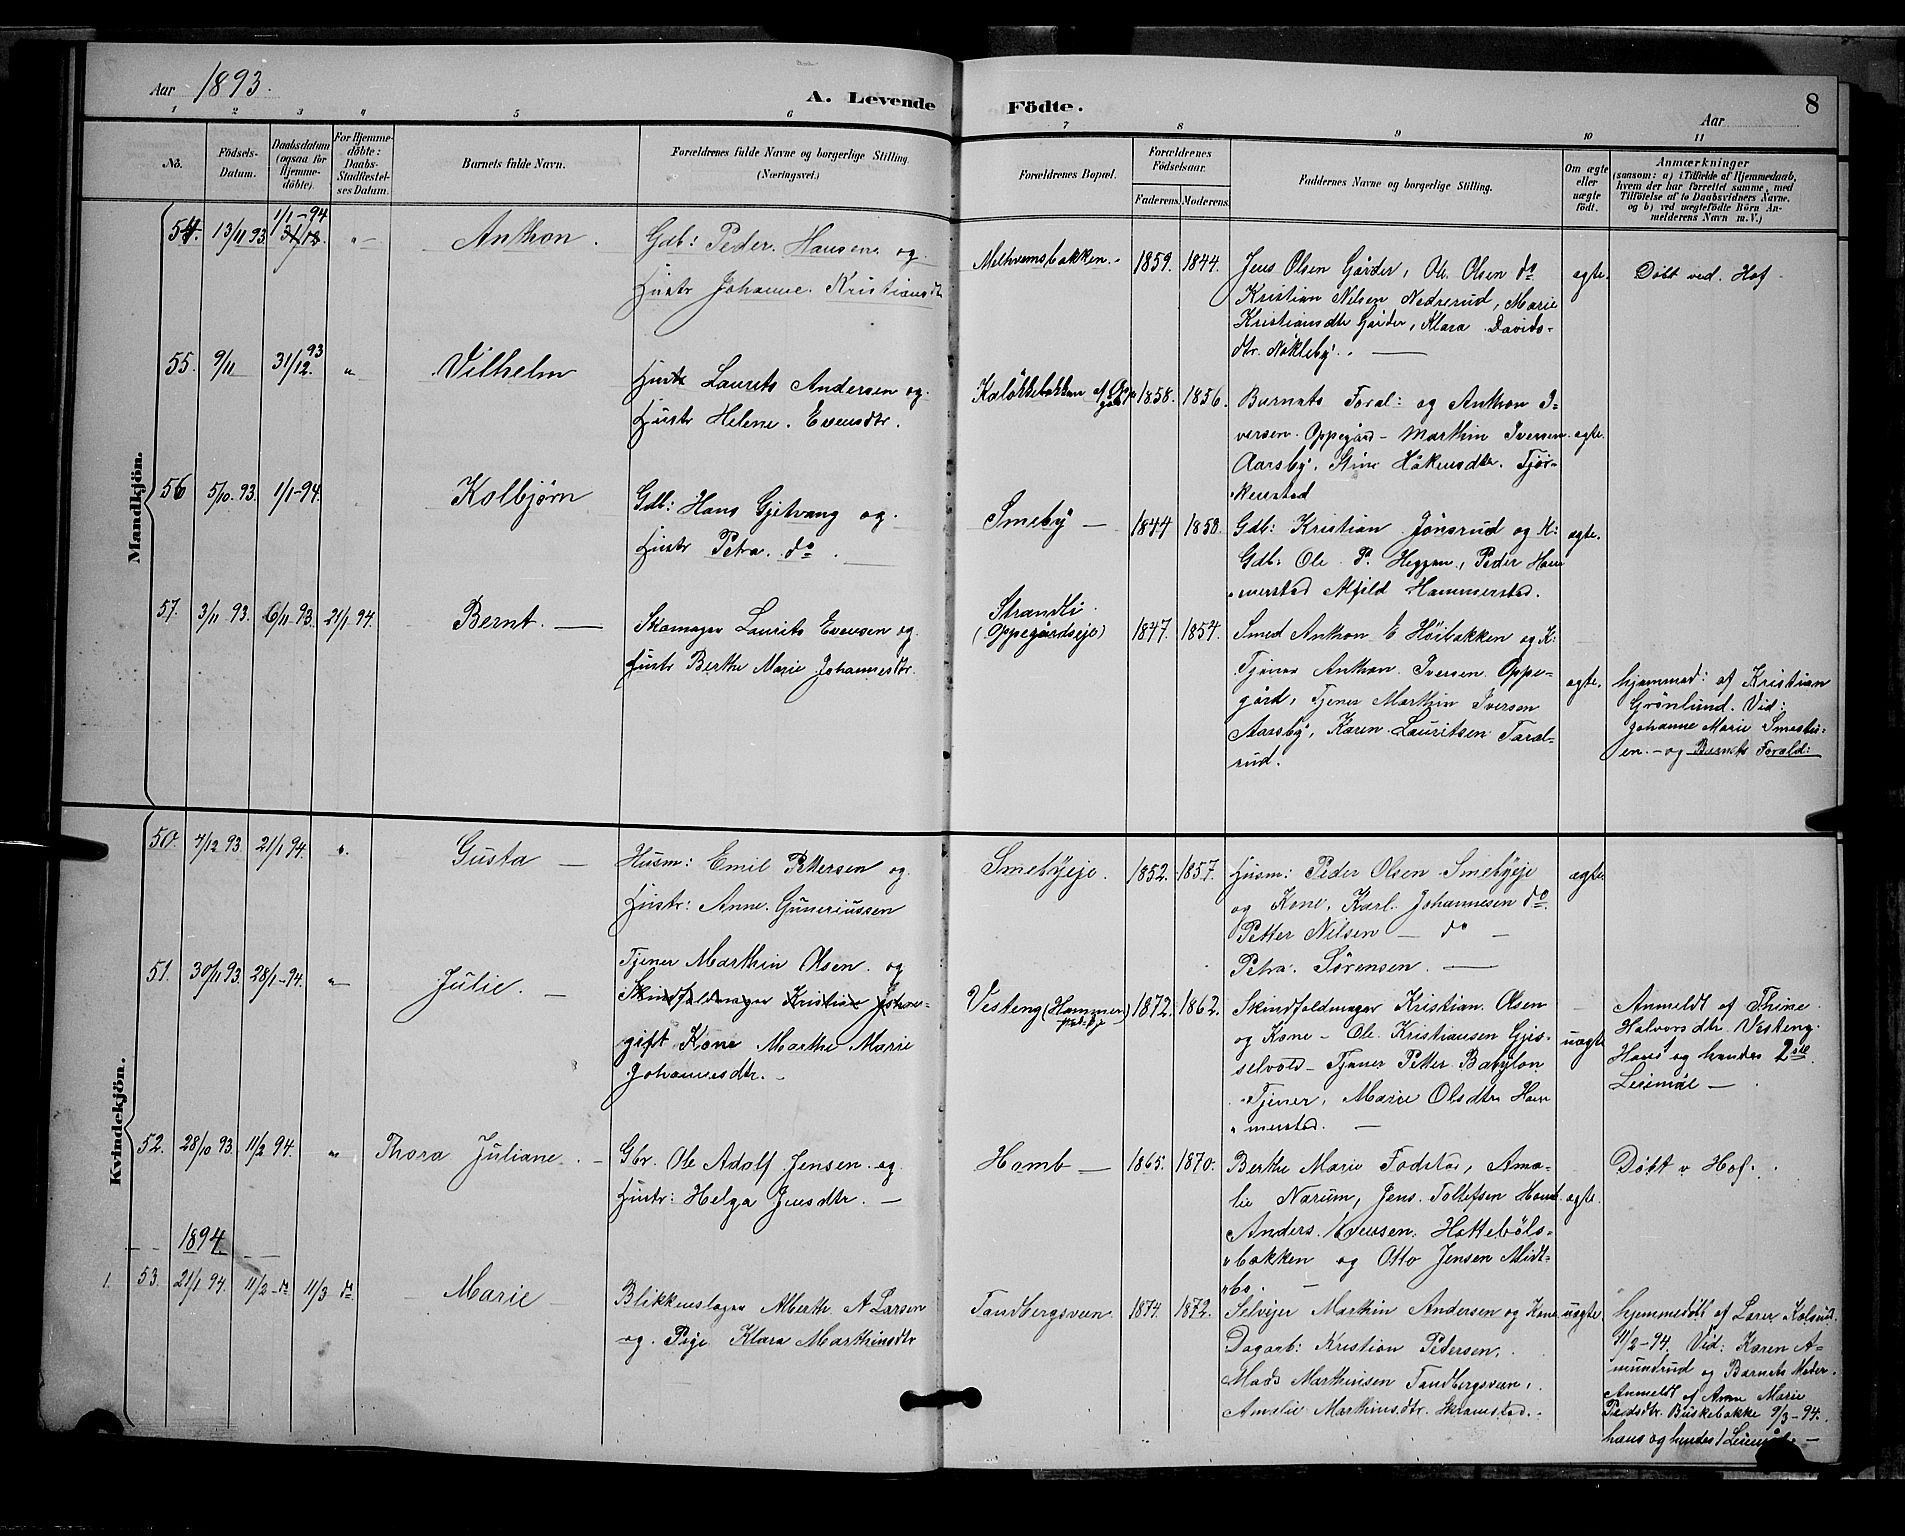 Aar 1893.
A. Levende Födte.
Aar
8
1 2 3 4 5 6 7 8 9 10 11
No.
Födsels-Datum.
Daabsdatum (ogsaa for Hjemme-döbte).
For Hjemme-döbte: Daabs-Stadfæstel-ses Datum.
Barnets fulde Navn.
Forældrenes fulde Navne og borgerlige Stilling. (Næringsvei.)
Forældrenes Bopæl.
Forældrenes Födselsaar.
Faderens. Moderens.
Faddernes Navne og borgerlige Stilling.
Om ægte eller uægte födt.
Anmærkninger
(saasom: a) i Tilfælde af Hjemmedaab, hvem der har forrettet samme, med Tilföielse af to Daabsvidners Navne, og b) ved uægtefödte Börn An-melderens Navn m. V.)
Mandkjön.
54. 13/11 93. 1/1-94 " Anthon.
Gdb: Peder Hansen og
Hustr Johanne Kristiansdt
Melhvemsbakken. 1859. 1844.
Jens Olsen Gårder, Ole Olsen do
Kristian Nilsen Nedrerud, Marie
Kristiansdtr Gårder, Klara Davids-
dtr. Nökleby.
ægte. Döbt ved Hof
55. 9/11 31/12 93. " Vilhelm
Laurits Andersen og
Hustr Helene Evensdtr.
1858. 1856.
Barnets Foræl: og Anthon I-
versen Oppegård - Marthin Iversen
Aarsby, Stine Håkensdtr. Tjör-
kenstad
ægte.
56 5/10 93. 1/1-94. Kolbjørn
Gdb: Hans Gjetvang og
Hustr Petra do
Smeby — 1844 1853.
Gdb: Kristian Jönsrud og K:
Gdb: Ole P. Heggen, Peder Ham
merstad Hammerstad.
ægte.
57. 3/11 93. 6/11 93. 21/1 94. Bernt. —
Skomager Laurits Evensen og
Hustr Berthe Marie Johannesdtr.
Strandli
(Oppegårdseje)
1847. 1854.
Smed Anthon E Höibakken og K:
Tjener Anthon Iversen Oppe-
gård, Tjener Marthin Iversen
Aarsby, Karen Lauritsen Taral-
rud.
ægte.
hjemmed: af Kristian
Grönlund. Vid:
Johanne Marie
og Barnets Foræld:
Kvindekjön.
50. 4/12 93. 21/1 94. " Gusta —
Husm: Emil Pettersen og
Hustr: Anne Guneriussen
Smebyeje. 1852. 1857.
Husm: Peder Olsen Smebyeje
og Kone, Karl Johannesen do.
Petter Nilsen — do —
Petra Sörensen. —
ægte
51. 30/11 93. 28/1-94. " Julie. —
Tjener Marthin Olsen og
Skindfeldmager Kristian
gift Kone Marthe Marie
Johannesdtr. -
Vesteng (Hammer
1872. 1862.
Skindfeldmager Kristian Olsen
og Kone - Ole Kristiansen Gjis-
selvold - Tjener Petter Babylon
Tjener, Marie Olsdtr Ham
merstad. —
uægte
Anmeldt af Thine
Halvorsdtr Vesteng.
Hans og hendes 2det
Leiemål —
52. 28/10 93. 11/2 94. " Thora Juliane. -
Gbr. Ole Adolf Jensen og
Hustr: Helga Jensdtr. —
Homb — 1865. 1870.
Berthe Marie Fodstad, Ama-
lie Narum, Jens Tollefsen Homb
Anders Evensen Hottebóls-
bakken og Otto Jensen Midt-
bo. —
ægte.
Döbt v Hof.
1894
1. 53. 21/1 94. 11/2 do 11/3 do. Marie —
Blikkenslager Alberth A Larsen
og Pige Klara Marthinsdtr
Tandbergsveen. 1874. 1872.
Selvejer Marthin Andersen og Kone
Dagarb: Kristian Pedersen,
Mads Marthinsen Tandbergsveen,
Amalie Marthinsdtr. Skramstad.
uægte
hjemmedöbt af Lærer
11/2-94. Vid: Karen A-
mundrud og Barnets Moder.
Anmeldt af Anne Marie
Pedsdtr. Buskebakke 9/3-94.
hans og hendes 1 Leiemål. —